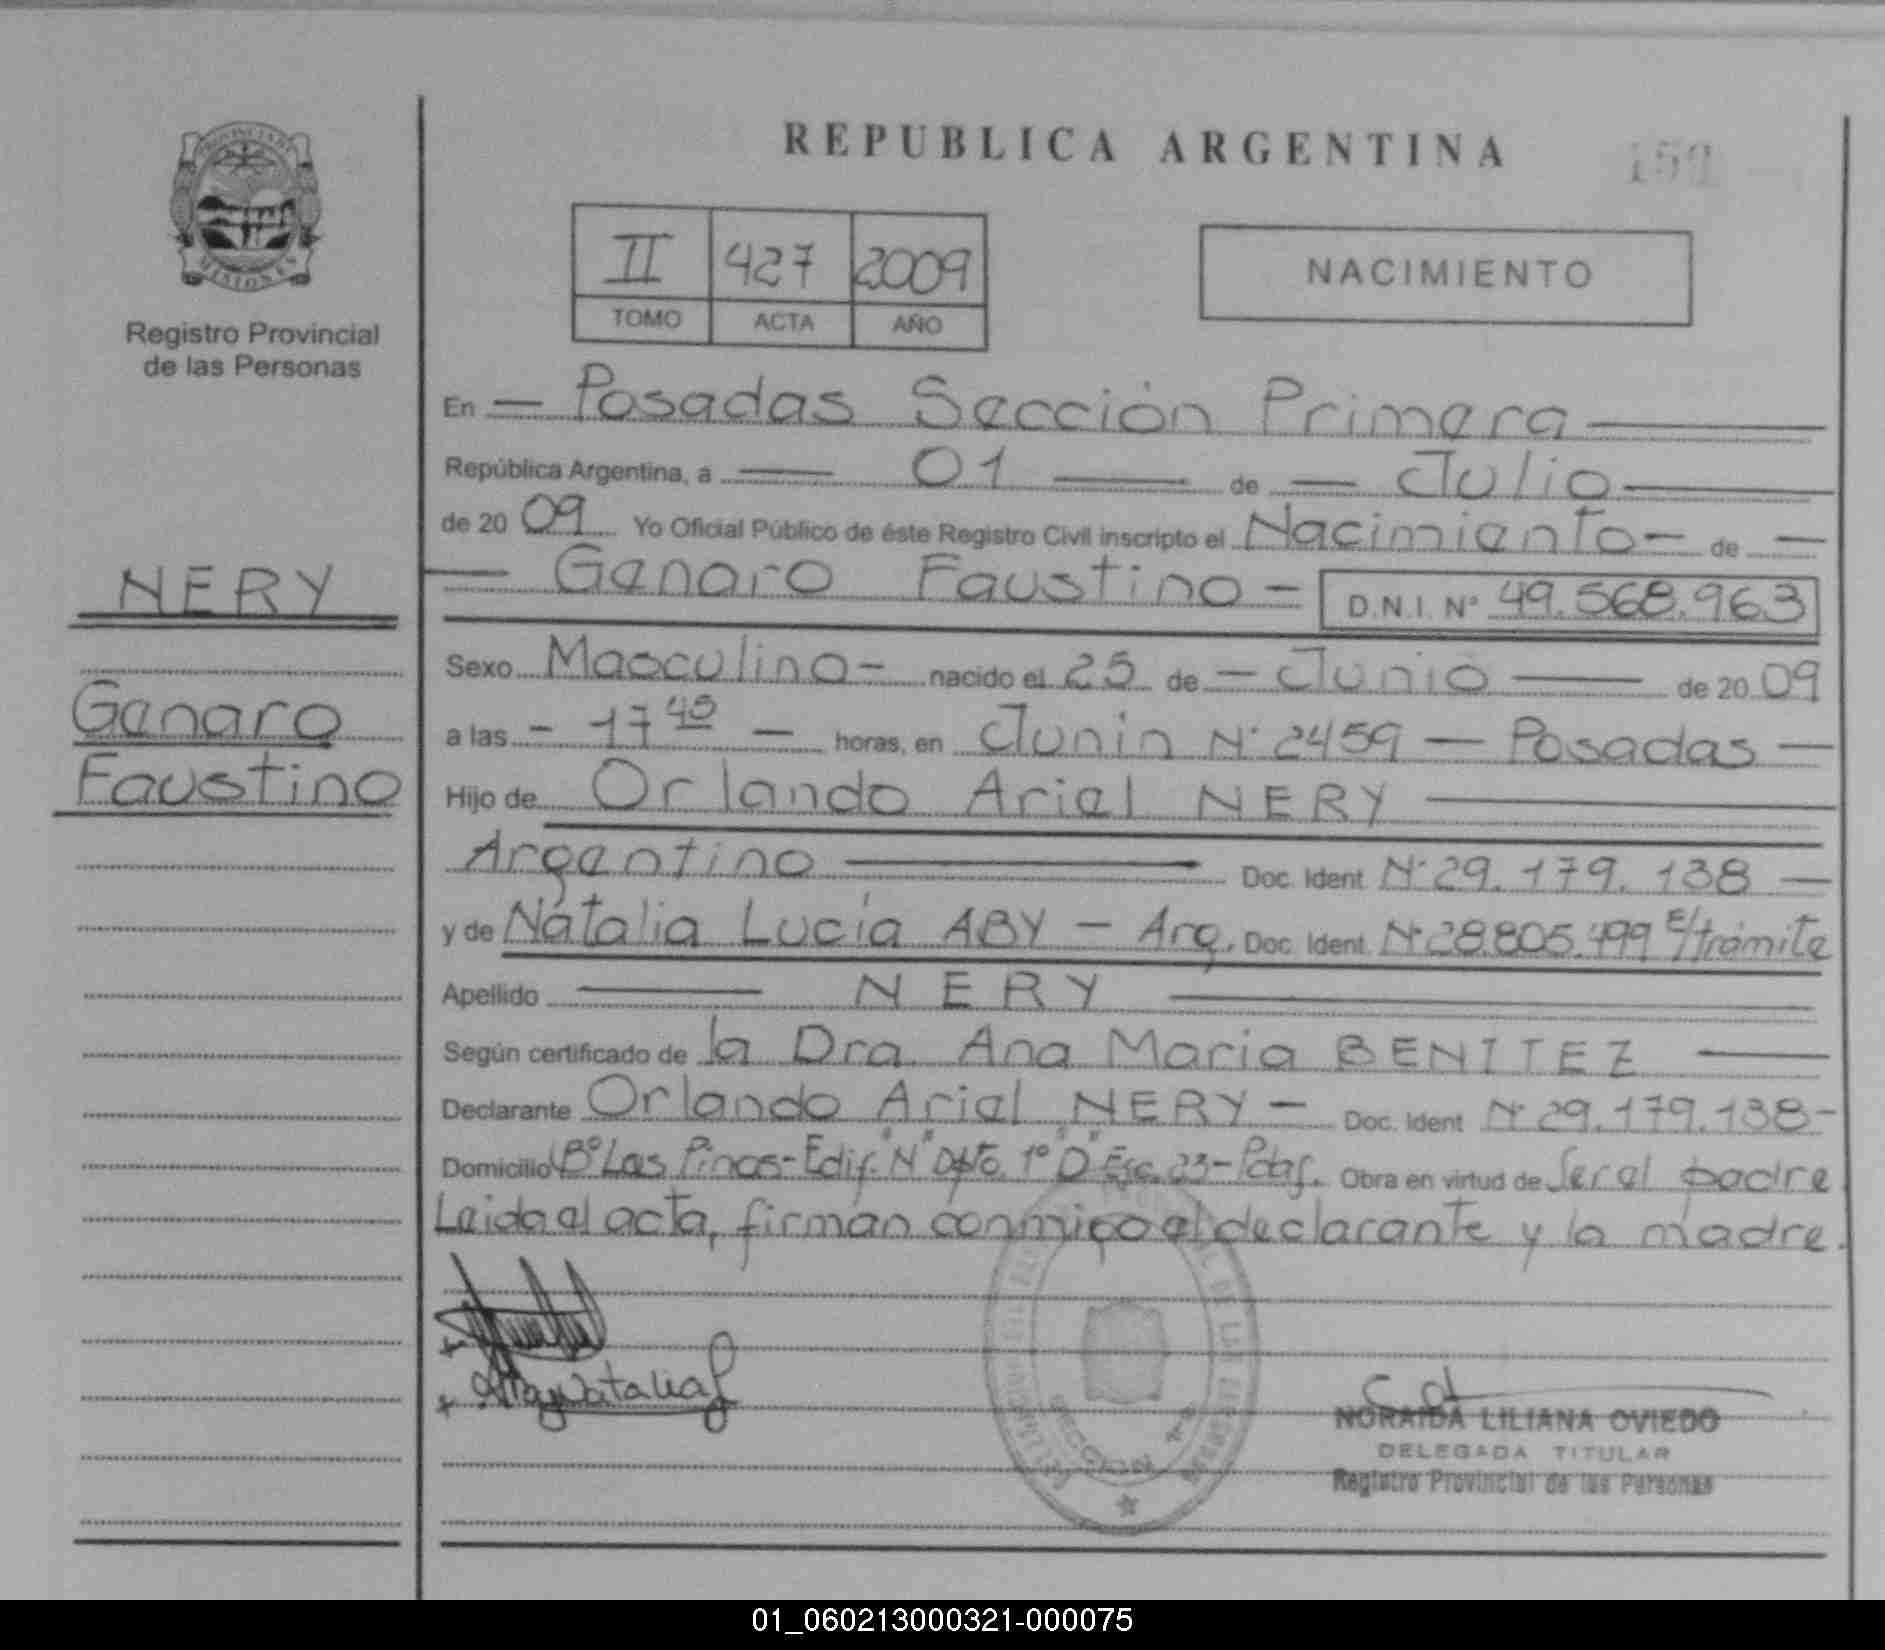 REPUBLICA ARGENTINA
159
PROVINCIA DE
MISIONES
Registro Provincial
de las Personas
II 427 2009
TOMO ACTA AÑO
NACIMIENTO
En Posadas Sección Primera
República Argentina, a 01 de Julio
de 20 09 Yo Oficial Público de éste Registro Civil inscripto el Nacimiento de
Genaro Faustino D.N.I. Nº 49.568.963
NERY
Genaro
Faustino
Sexo Masculino nacido el 25 de Junio de 20 09
a las 17 45 horas, en Junin Nº 2459 - Posadas
Hijo de Orlando Ariel NERY
Argentino Doc. Ident Nº 29.179.138
y de Natalia Lucía ABY - Arg. Doc. Ident. Nº 28.805.499 E/trámite
Apellido NERY
Según certificado de la Dra. Ana Maria BENITEZ
Declarante Orlando Ariel NERY - Doc. Ident Nº 29.179.138
Domicilio Bº Los Pinos - Edif. "N" Dpto. 1º "D" Esc. 23 - Pdas. Obra en virtud de Ser el padre
Leida el acta, firman conmigo el declarante y la madre.
Aby Natalia
SECCION 1ra
NORAIDA LILIANA OVIEDO
DELEGADA TITULAR
Registro Provincial de las Personas
01_060213000321-000075